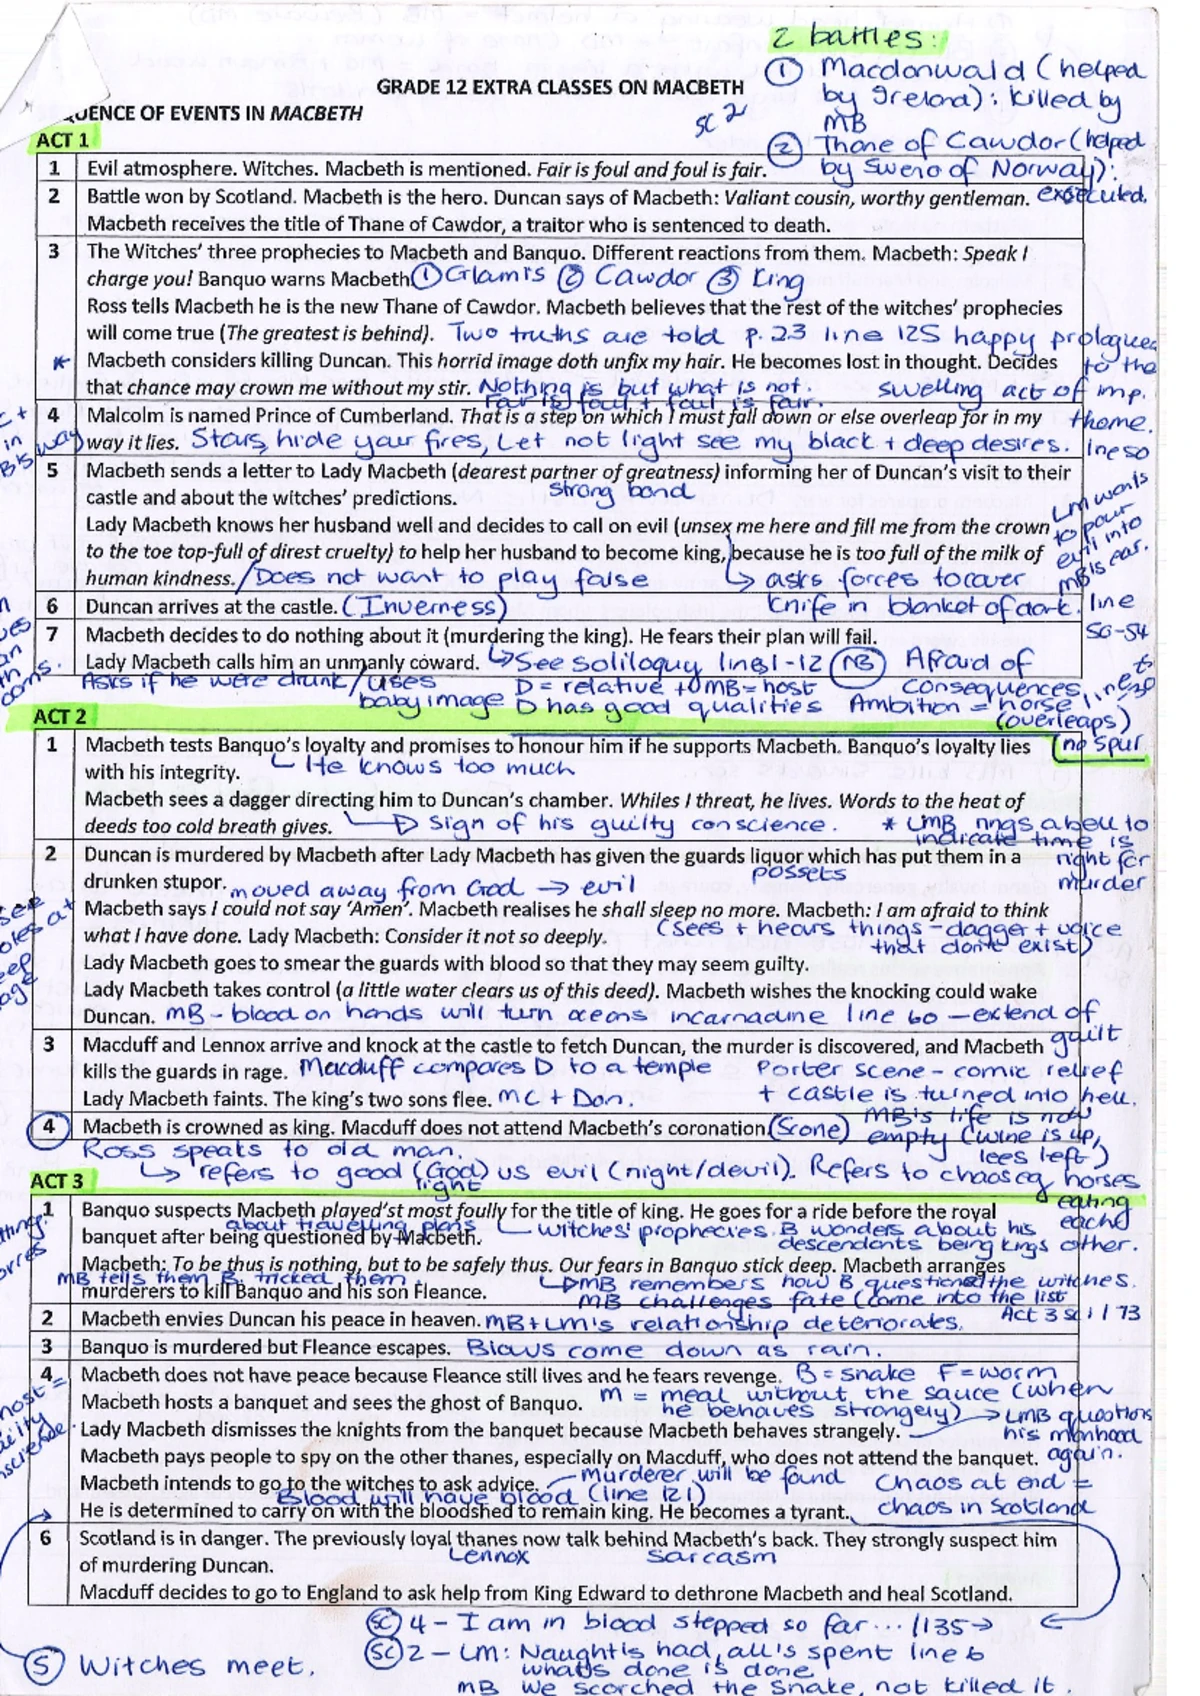 2 battles:
① Macdonwald (helped
by Ireland): killed by
MB
② Thane of Cawdor (helped
by Sweno of Norway):
executed.
GRADE 12 EXTRA CLASSES ON MACBETH
SC 2
QUENCE OF EVENTS IN MACBETH
ACT 1
1 Evil atmosphere. Witches. Macbeth is mentioned. Fair is foul and foul is fair.
2 Battle won by Scotland. Macbeth is the hero. Duncan says of Macbeth: Valiant cousin, worthy gentleman.
Macbeth receives the title of Thane of Cawdor, a traitor who is sentenced to death.
3 The Witches' three prophecies to Macbeth and Banquo. Different reactions from them. Macbeth: Speak I
charge you! Banquo warns Macbeth. ① Glamis ② Cawdor ③ King
Ross tells Macbeth he is the new Thane of Cawdor. Macbeth believes that the rest of the witches' prophecies
will come true (The greatest is behind). Two truths are told p. 23 line 125 happy prologues
* Macbeth considers killing Duncan. This horrid image doth unfix my hair. He becomes lost in thought. Decides to the
that chance may crown me without my stir. Nothing is but what is not. swelling act of imp.
Fair is foul + foul is fair.
4 Malcolm is named Prince of Cumberland. That is a step on which I must fall down or else overleap for in my theme.
way it lies. Stars, hide your fires, Let not light see my black + deep desires. line 50
5 Macbeth sends a letter to Lady Macbeth (dearest partner of greatness) informing her of Duncan's visit to their
castle and about the witches' predictions. strong bond
LM wants
to pour
evil into
MB's ear.
Lady Macbeth knows her husband well and decides to call on evil (unsex me here and fill me from the crown
to the toe top-full of direst cruelty) to help her husband to become king, because he is too full of the milk of
human kindness. / Does not want to play false ↳ asks forces to cover
6 Duncan arrives at the castle. (Inverness) knife in blanket of dark. line
50-54
7 Macbeth decides to do nothing about it (murdering the king). He fears their plan will fail.
Lady Macbeth calls him an unmanly coward. ↳ See soliloquy lines 1-12 (NB) Afraid of
Asks if he were drunk / uses D = relative to MB = host consequences,
baby image D has good qualities Ambition = horse
(overleaps)
no spur
ACT 2
1 Macbeth tests Banquo's loyalty and promises to honour him if he supports Macbeth. Banquo's loyalty lies
with his integrity. He knows too much
Macbeth sees a dagger directing him to Duncan's chamber. Whiles I threat, he lives. Words to the heat of
deeds too cold breath gives. → sign of his guilty conscience. * LMB rings a bell to
indicate time is
right for
murder
2 Duncan is murdered by Macbeth after Lady Macbeth has given the guards liquor which has put them in a
possets
drunken stupor. moved away from God → evil
Macbeth says I could not say 'Amen'. Macbeth realises he shall sleep no more. Macbeth: I am afraid to think
what I have done. Lady Macbeth: Consider it not so deeply. (sees + hears things - dagger + voice
that don't exist)
Lady Macbeth goes to smear the guards with blood so that they may seem guilty.
Lady Macbeth takes control (a little water clears us of this deed). Macbeth wishes the knocking could wake
Duncan. MB - blood on hands will turn oceans incarnadine line 60 – extend of
guilt
3 Macduff and Lennox arrive and knock at the castle to fetch Duncan, the murder is discovered, and Macbeth
kills the guards in rage. Macduff compares D to a temple Porter scene - comic relief
Lady Macbeth faints. The king's two sons flee. MC + Don. + castle is turned into hell.
MB's life is now
4 Macbeth is crowned as king. Macduff does not attend Macbeth's coronation. (Scone) empty (wine is up,
lees left)
Ross speaks to old man.
↳ refers to good (God) vs evil (night/devil). Refers to chaos eg horses
light
eating
each
other.
ACT 3
1 Banquo suspects Macbeth played'st most foully for the title of king. He goes for a ride before the royal
about travelling plans
banquet after being questioned by Macbeth. witches' prophecies. B wonders about his
descendents being kings
Macbeth: To be thus is nothing, but to be safely thus. Our fears in Banquo stick deep. Macbeth arranges
MB tells them B. tricked them. ↳ MB remembers how B questioned the witches.
murderers to kill Banquo and his son Fleance. MB challenges fate (come into the list
Act 3 sc 1 l 73
2 Macbeth envies Duncan his peace in heaven. MB + LM's relationship deteriorates.
3 Banquo is murdered but Fleance escapes. Blows come down as rain.
4 Macbeth does not have peace because Fleance still lives and he fears revenge. B = snake F = worm
Macbeth hosts a banquet and sees the ghost of Banquo. m = meal without the sauce (when
he behaves strangely) → LMB questions
his manhood
again.
Lady Macbeth dismisses the knights from the banquet because Macbeth behaves strangely.
Macbeth pays people to spy on the other thanes, especially on Macduff, who does not attend the banquet.
Macbeth intends to go to the witches to ask advice. Murderer will be found Chaos at end =
Blood will have blood (line 121) chaos in Scotland
He is determined to carry on with the bloodshed to remain king. He becomes a tyrant.
6 Scotland is in danger. The previously loyal thanes now talk behind Macbeth's back. They strongly suspect him
of murdering Duncan. Lennox sarcasm
Macduff decides to go to England to ask help from King Edward to dethrone Macbeth and heal Scotland.
SC 4 - I am in blood stepped so far... l135→
⑤ Witches meet. SC 2 - LM: Naught's had, all's spent line 6
what's done is done
MB we scorched the snake, not killed it.